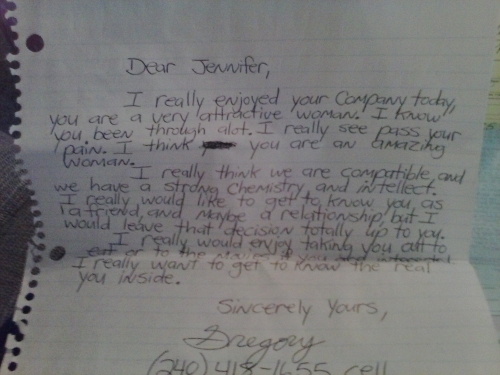 Dear Jennifer,
I really enjoyed your Company today,
you are a very attractive woman. I know
you been through alot. I really see pass your
pain. I think you are an amazing
woman.
I really think we are compatible, and
we have a strong chemistry, and intellect.
I really would like to get to know you, as
a friend, and maybe a relationship, but I
would leave that decision totally up to you.
I really would enjoy taking you out to
eat or to the movies if you are interested
I really want to get to know the real
you inside.
Sincerely Yours,
Gregory
(240) 418-1655 cell